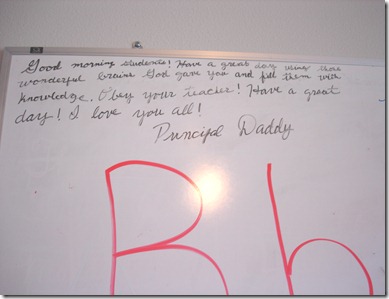 Good morning students! Have a great day using those
wonderful brains God gave you and fill them with
knowledge. Obey your teacher! Have a great
day! I love you all!
Principal Daddy
B b